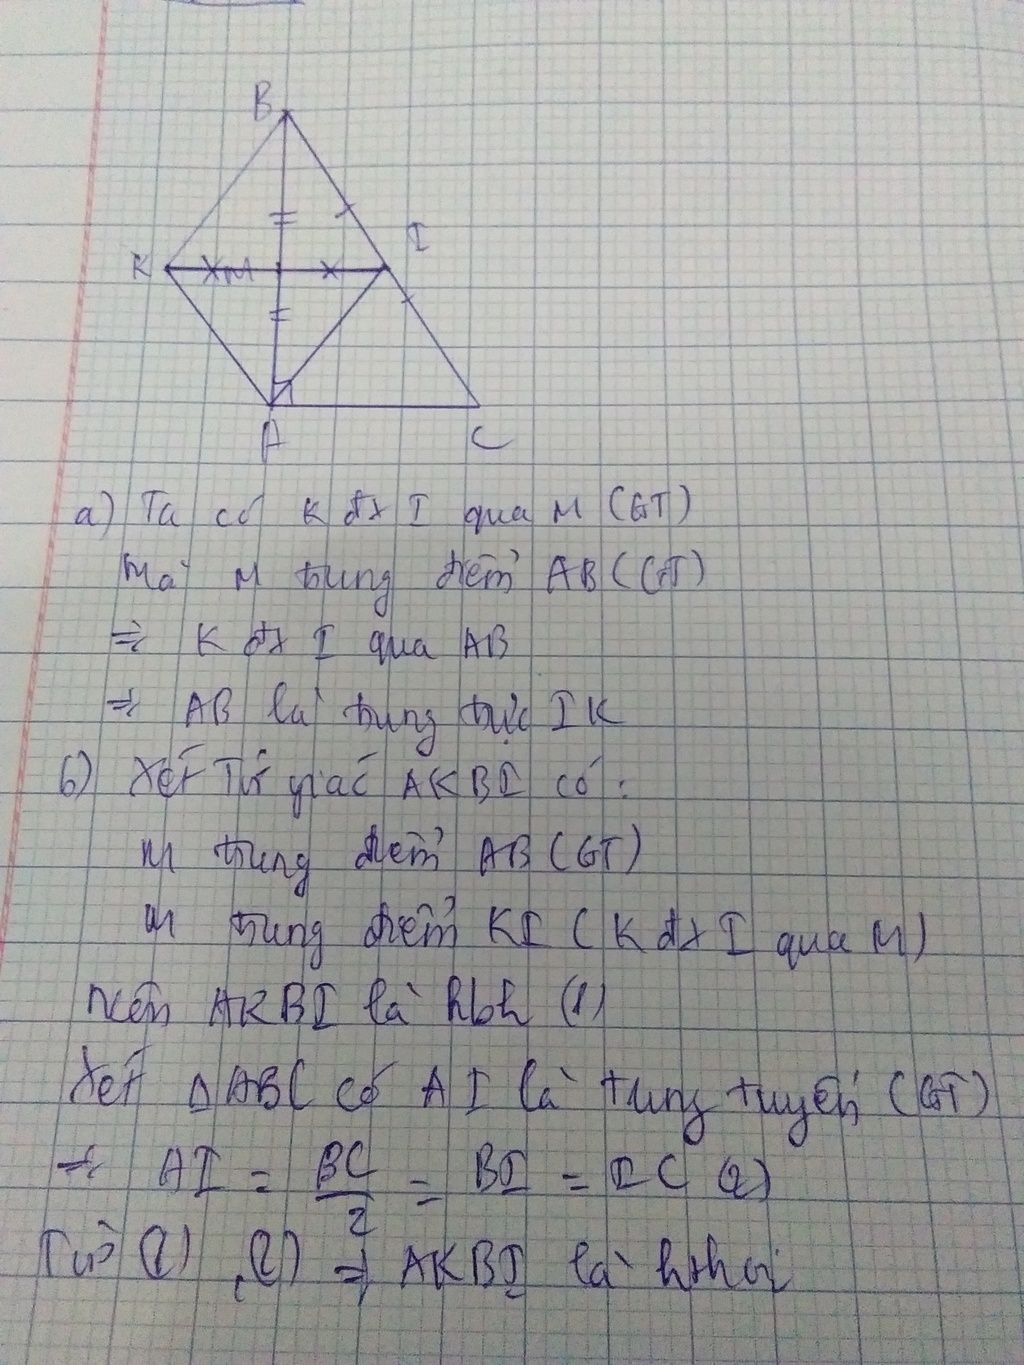 B
I
K M
A C
a) Ta có K đx I qua M (GT)
Mà M trung điểm AB (GT)
=> K đx I qua AB
=> AB là trung trực IK
b) Xét Tứ giác AKBI có :
M trung điểm AB (GT)
M trung điểm KI ( K đx I qua M)
Nên AKBI là hbh (1)
Xét ΔABC có AI là trung tuyến (GT)
=> AI = BC/2 = BI = IC (2)
Từ (1) , (2) => AKBI là hthoi